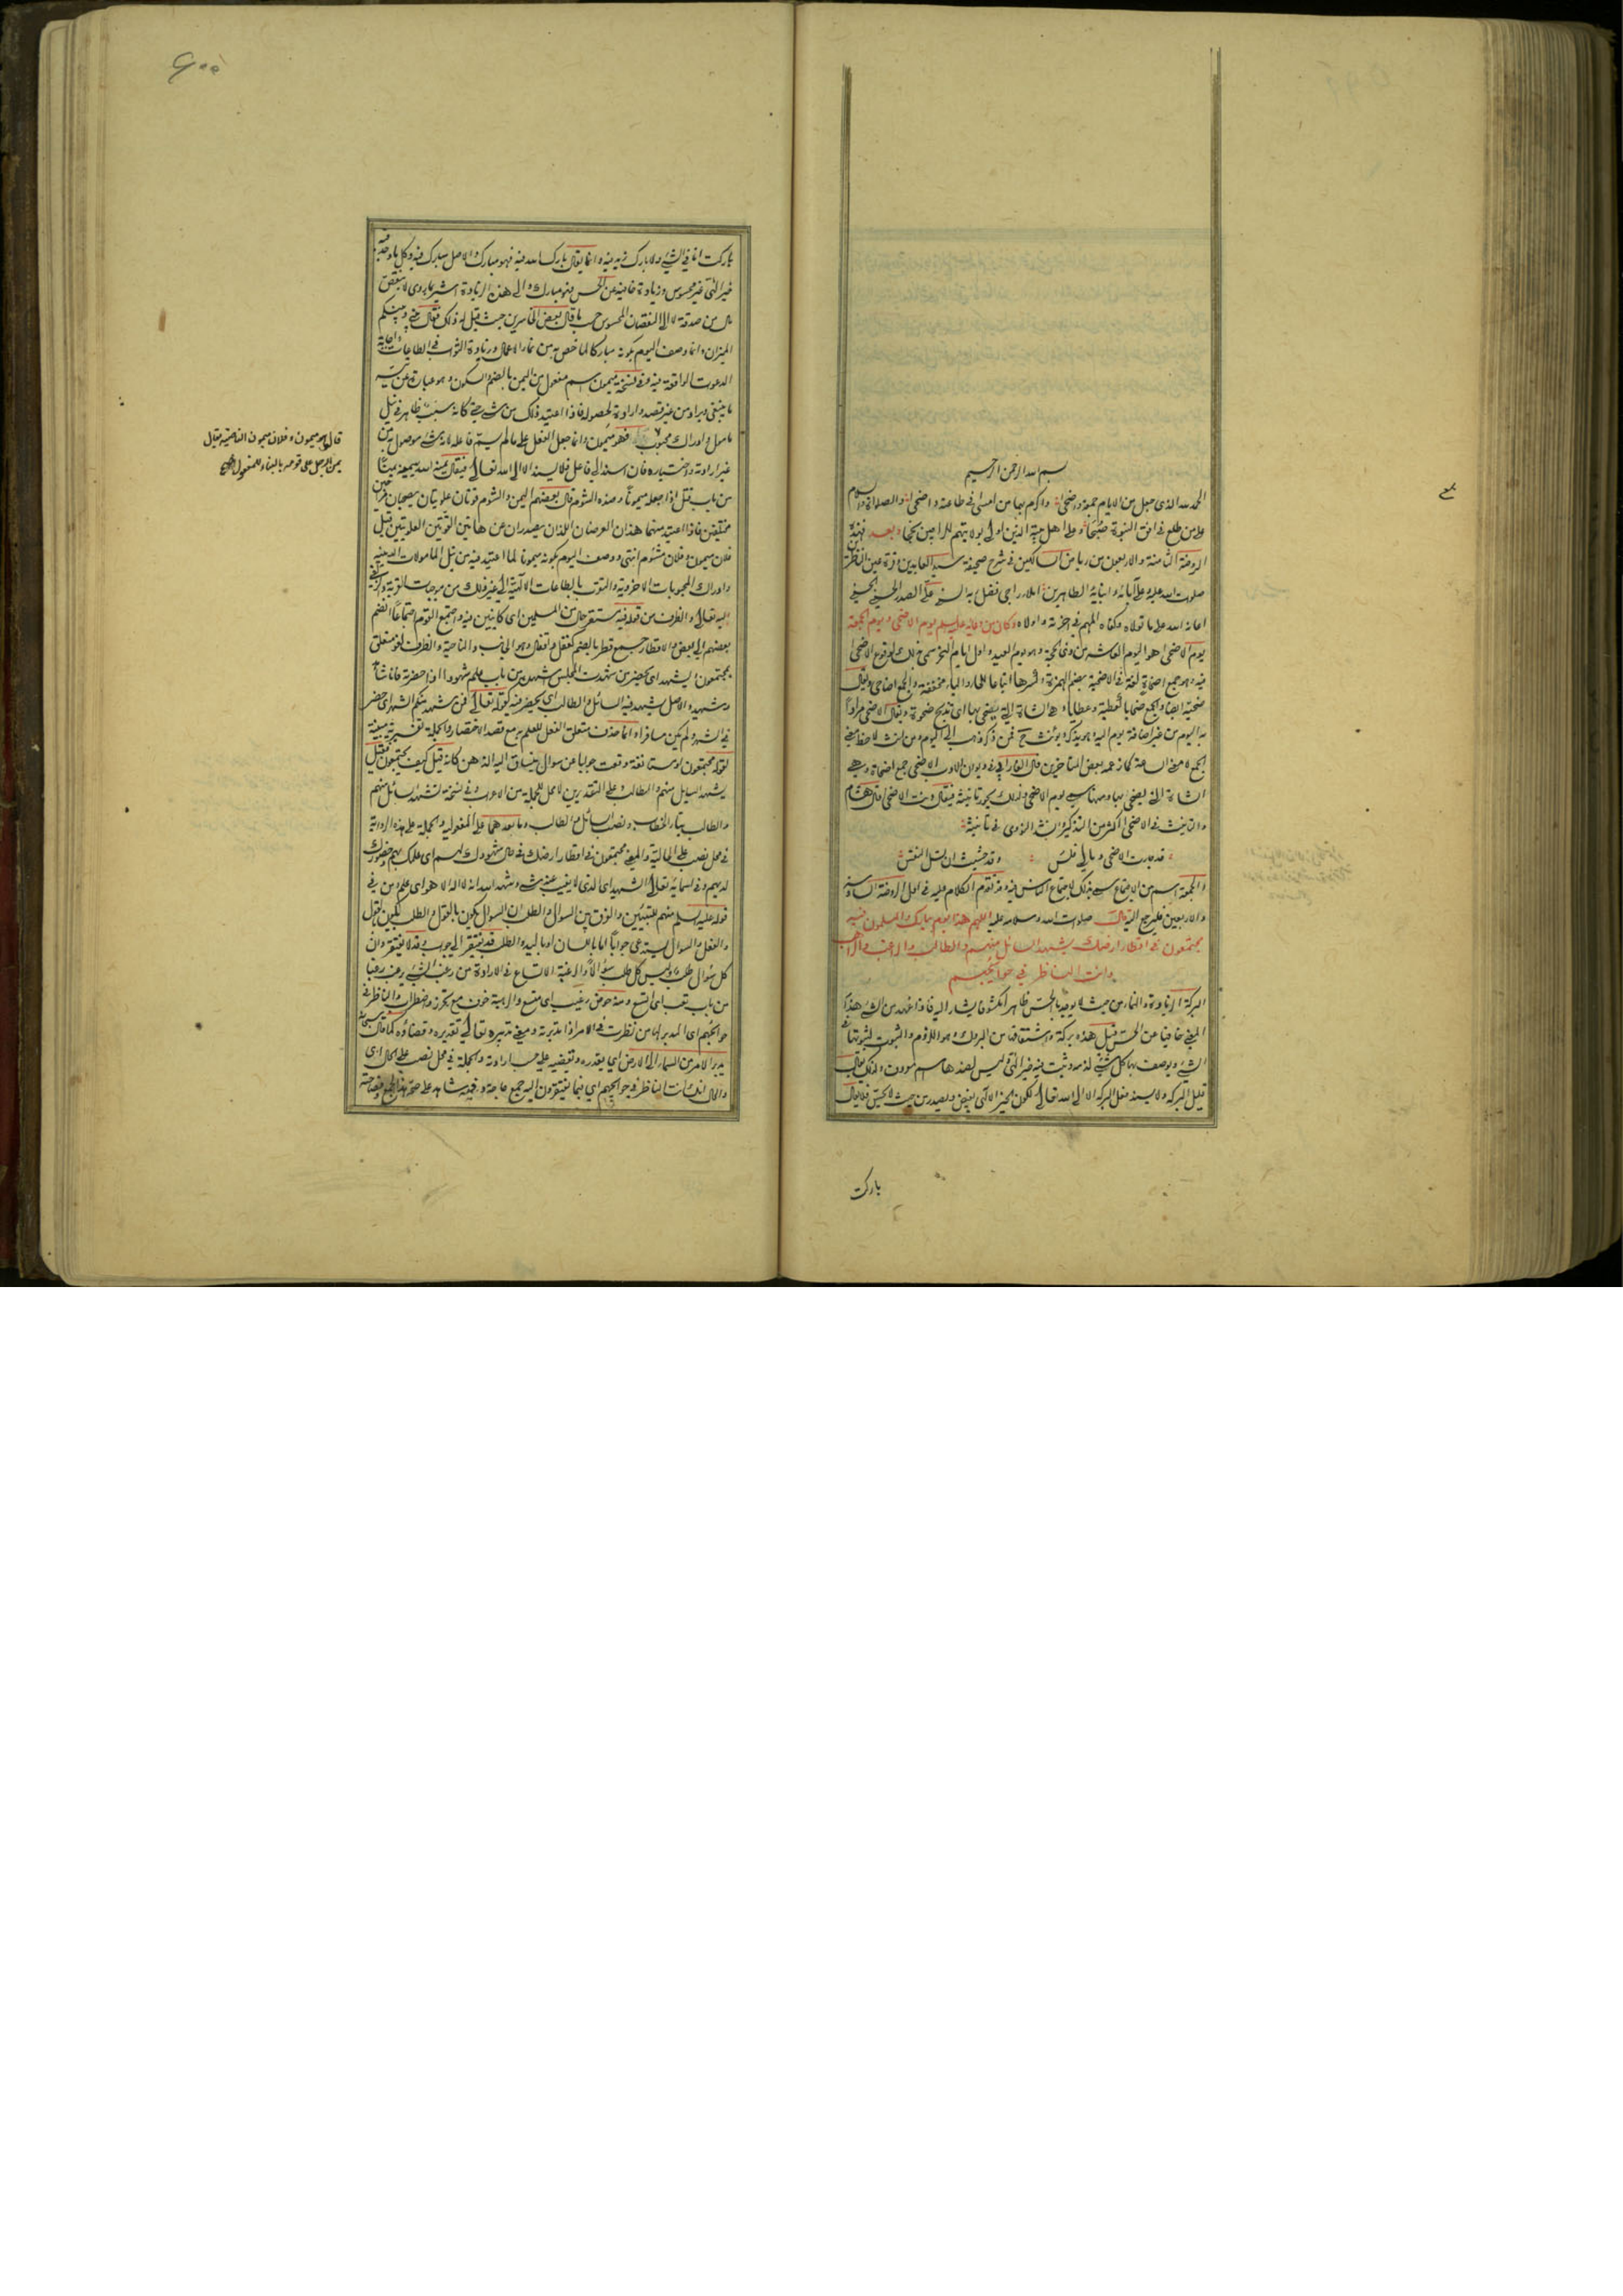 بسم الله الرحمن الرحيم
الحمد لله الذي جعل من الايام جمعة واضحى واكرم بها من امسى في طاعته واضحى والصلوة والسلام
على من طلع في افق النبوة صبحا وعلى اهل بيته الذين بولايتهم وبعد فهذه
الروضة الثامنة والاربعون من رياض السالكين في شرح صحيفة سيد العابدين وقرة عين الناظرين
صلوات الله عليه وعلى آبائه وابنائه الطاهرين املاء راجي فضل ربه السني علي الصدر الحسيني الحسني
اعانه الله على ما تولاه وكفاه المهم في اخرته واولاه وكان من دعائه عليه السلام يوم الاضحى ويوم الجمعة
يوم الاضحى هو اليوم العاشر من ذي الحجة وهو يوم العيد واول ايام النحر سمي بذلك لوقوع الاضحى
فيه وهو جمع اضحاة لغة في الاضحية بضم الهمزة وكسرها اتباعا للحاء والياء مخففة والجمع اضاحي ويقال
ضحية ايضا والجمع ضحايا كعطية وعطايا وهي الشاة التي يضحى بها اي تذبح ضحوة ويقال الاضحى مرادا
به اليوم من غير اضافة يوم اليه وهو يذكر ويؤنث فمن ذكر ذهب الى اليوم ومن انث لاحظ معنى
الجمع لا معنى الساعة كما زعمه بعض المتاخرين قال الفارابي في ديوان الادب الاضحى جمع اضحاة وهي
الشاة التي يضحى بها وبها سمي يوم الاضحى ولذلك يجوز تانيثه فيقال دنت الاضحى قال هشام
والتانيث في الاضحى اكثر من التذكير انشد الفراء في تانيثه
قد جاءت الاضحى وما لي فلس وقد خشيت ان تسل النفس
والجمعة اسم من الاجتماع سمي بذلك لاجتماع الناس فيه وقد تقدم الكلام عليه في اول الروضة السادسة
والاربعين فليرجع اليه قال صلوات الله وسلامه عليه اللهم هذا يوم مبارك والمسلمون فيه
مجتمعون في اقطار ارضك يشهد السائل منهم والطالب والراغب والراهب
وانت الناظر في حوائجهم
البركة الزيادة والنماء من حيث لا يوجد بالحس ظاهرا مكشوفا يشار اليه فاذا عهد من الشيء هذا
المعنى خافيا عن الحس قيل هذه بركة واشتقاقها من البروك وهو اللزوم والثبوت لثبوتها في
الشيء ويوصف بها كل شيء لزمه وثبت فيه خير الهي وليس لضدها اسم معروف ولذلك يقال
قليل البركة ولا يسند فعل البركة الا الى الله تعالى لكون الخير الالهي يفيض ويصدر من حيث لا يحس فلا يقال
باركت
بلغ
باركت انا في الشيء ولا بارك زيد فيه وانما يقال بارك الله فيه فهو مبارك والاصل مبارك فيه وكل ما وجد فيه
خير الهي غير محسوس وزيادة خافية عن الحس فهو مبارك والى هذه الزيادة اشير بما روي لا ينقص
مال من صدقة لا الى النقصان المحسوس حسب ما قال بعض الخاسرين حيث قيل له ذلك فقال بيني وبينكم
الميزان وانما وصف اليوم بكونه مباركا لما خص به من نماء الاعمال وزيادة الثواب في الطاعات واجابة
الدعوات الواقعة فيه وفي نسخة ميمون اسم مفعول من اليمن بالضم والسكون وهو عبارة عن تيسر
ما ينبغي ويراد من غير قصد وارادة لحصوله فاذا اعتيد ذلك من شيء حتى كانه سبب ظاهر في نيل
مامول وادراك محبوب فهو ميمون وانما جعل الفعل على ما لم يسم فاعله لانه شيء موصول به من
غير ارادته واختياره فان اسند الى فاعل فلا يسند الا الى الله تعالى فيقال يمنه الله ييمنه يمنا
من باب قتل اذا جعله ميمونا وضده الشؤم قال بعضهم اليمن والشؤم قوتان علويتان يصحبان
مختلفين فاذا اعتيد منهما هذان العرضان اللذان يصدران عن هاتين القوتين العلويتين قيل
فلان ميمون وفلان مشؤم انتهى ووصف اليوم بكونه ميمونا لما اعتيد فيه من نيل المامولات الدينية
وادراك المحبوبات الاخروية والثواب بالطاعات الآتية الى غير ذلك من موجبات القربة والزلفى
اليه تعالى والظرف من قوله فيه مستقر حال من المسلمين اي كائنين فيه واجتمع القوم اجتماعا انضم
بعضهم الى بعض والاقطار جمع قطر بالضم كقفل واقفال وهو الجانب والناحية والظرف لغو متعلق
بمجتمعون ويشهد اي يحضر من شهدت المجلس اشهده من باب علم شهودا اذا حضرته فانا شاهد
وشهيد والاصل يشهد فيه السائل والطالب اي يحضر فيه كقوله تعالى فمن شهد منكم الشهر اي حضر
في الشهر ولم يكن مسافرا وانما حذف متعلق الفعل للعلم به مع قصد الاختصار والجملة تفسيرية مبينة
لقوله مجتمعون او مستانفة وقعت جوابا عن سؤال ينساق اليه الذهن كانه قيل كيف يجتمعون فقيل
يشهد السائل منهم والطالب وعلى التقديرين لا محل للجملة من الاعراب وفي نسخة تشهد السائل منهم
والطالب بتاء الخطاب ونصب السائل والطالب وما بعدهما على المفعولية والجملة على هذه الرواية
في محل نصب على الحالية والمعنى مجتمعون في اقطار ارضك في حال شهودك لهم اي علمك بهم وحضورك
لديهم وفي اسمائه تعالى الشهيد اي الذي لا يغيب عنه شيء وشهد الله انه لا اله الا هو اي علم ومن في
قوله عليه السلام منهم للتبيين والفرق بين السؤال والطلب ان السؤال يكون بالقول والطلب يكون بالقول
والفعل والسؤال يستدعي جوابا اما باللسان او باليد والطلب قد يفتقر الى جواب وقد لا يفتقر وان
كل سؤال طلب وليس كل طلب سؤالا والرغبة الاتساع في الارادة من رغب الشيء يرغب رغبا
من باب تعب اي اتسع ومنه حوض رغيب اي متسع والرهبة خوف مع تحرز واضطراب والناظر في
حوائجهم اي المدبر لها من نظرت في الامر اذا تدبرته ومعنى تدبيره تعالى تقديره وقضاؤه كما قال سبحانه
يدبر الامر من السماء الى الارض اي يقدره ويقضيه على حسب ارادته والجملة في محل نصب على الحال اي
والحال انك انت الناظر في حوائجهم اي فيما يفتقرون اليه جمع حاجة وفيه شاهد على صحة هذا الجمع وفصاحته
قال هو ميمون وفلان ميمون الناصية ويقال
يمن الرجل على قومه بالبناء للمفعول